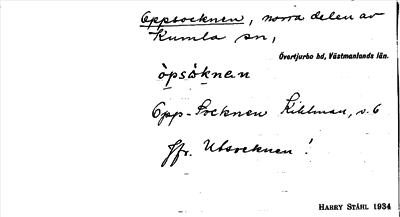 Oppsocknen, norra delen av
Kumla sn,
Övertjurbo hd, Västmanlands län.
òpsòknen
Opp-Socknen Kihlman, s. 6
Jfr. Utsocknen!
HARRY STÅHL 1934